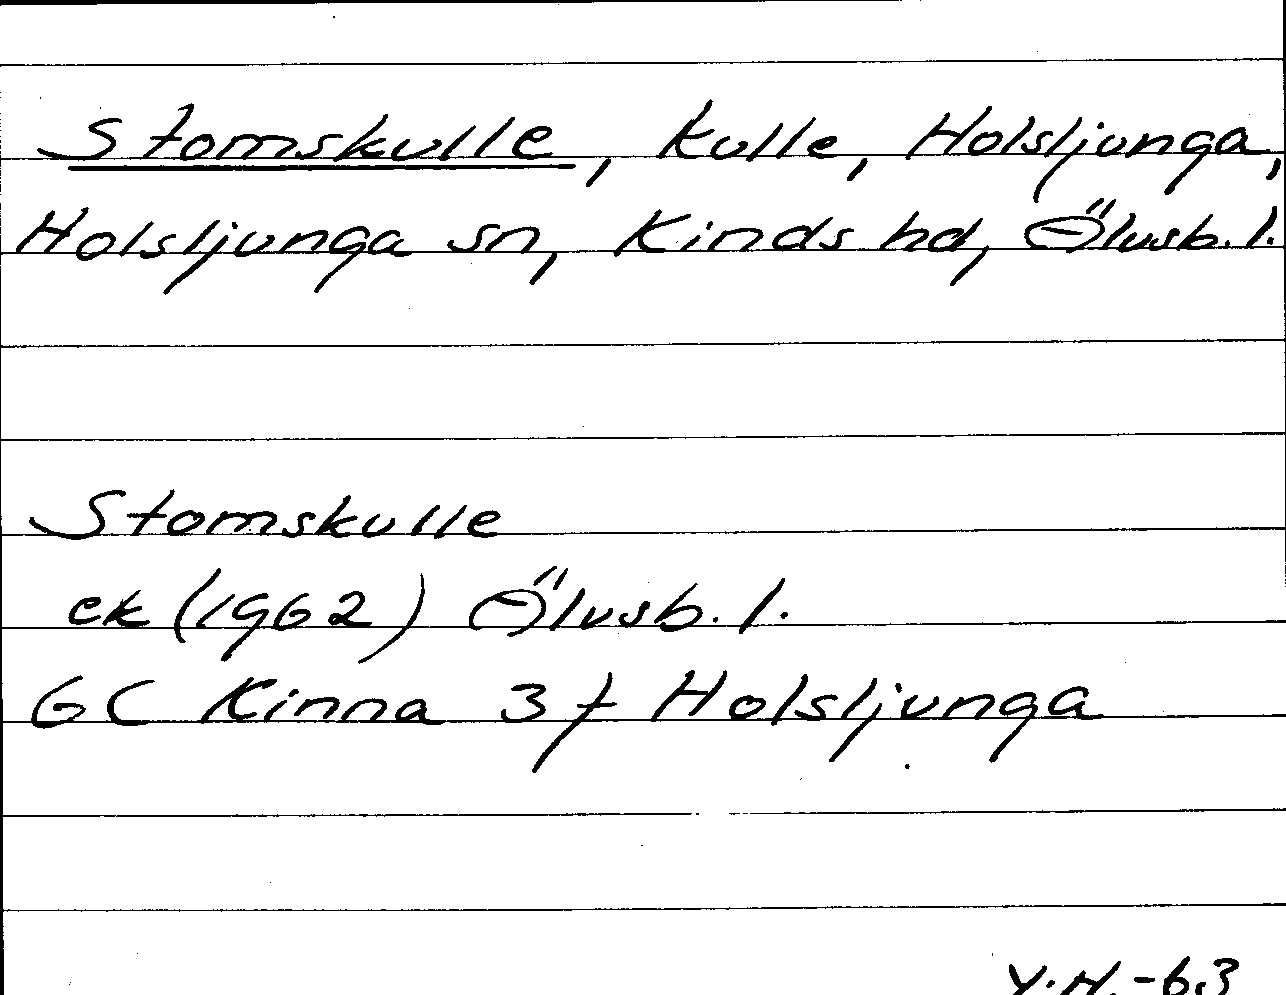 Stomskulle, kulle, Holsljunga,
Holsljunga sn, Kinds hd, Älvsb. l.
Stomskulle
ek (1962) Älvsb. l.
GC Kinna 3 f Holsljunga
Y.H. -63